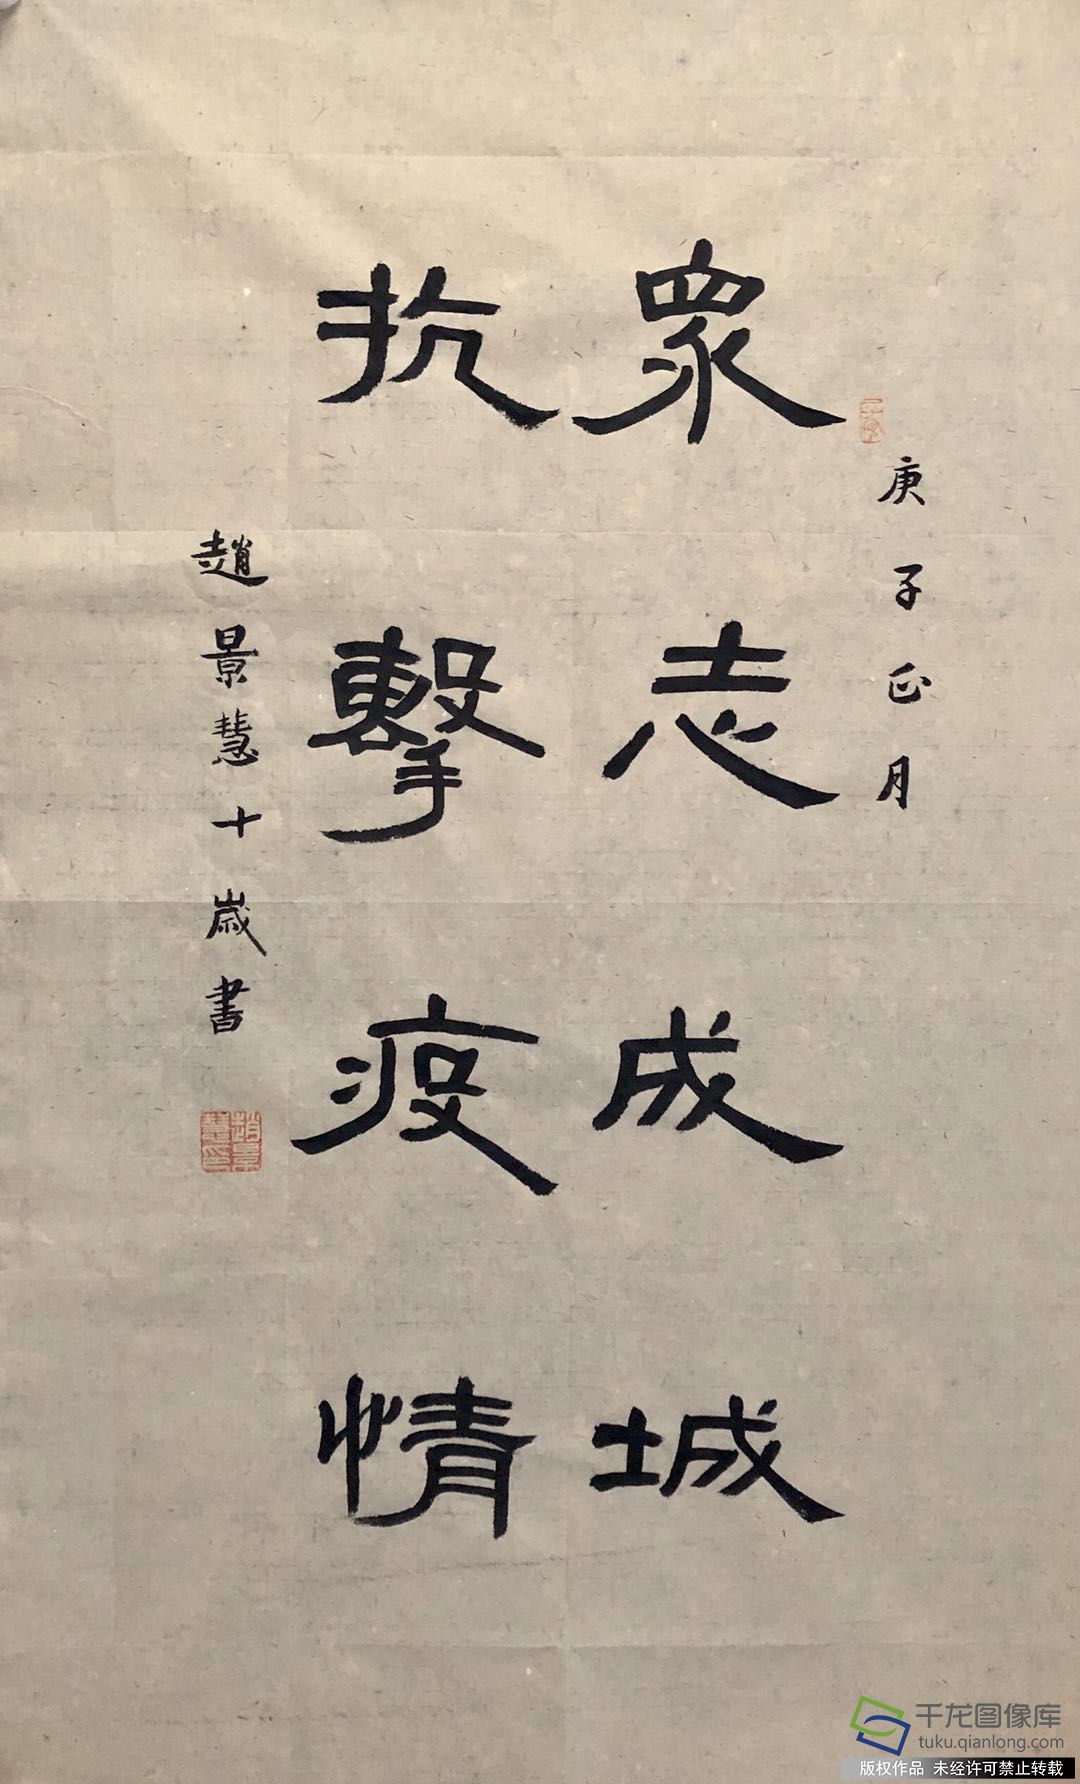 庚子正月
眾志成城
抗擊疫情
趙景慧十歲書
趙景慧印
千龙图像库
tuku.qianlong.com
版权作品 未经许可禁止转载